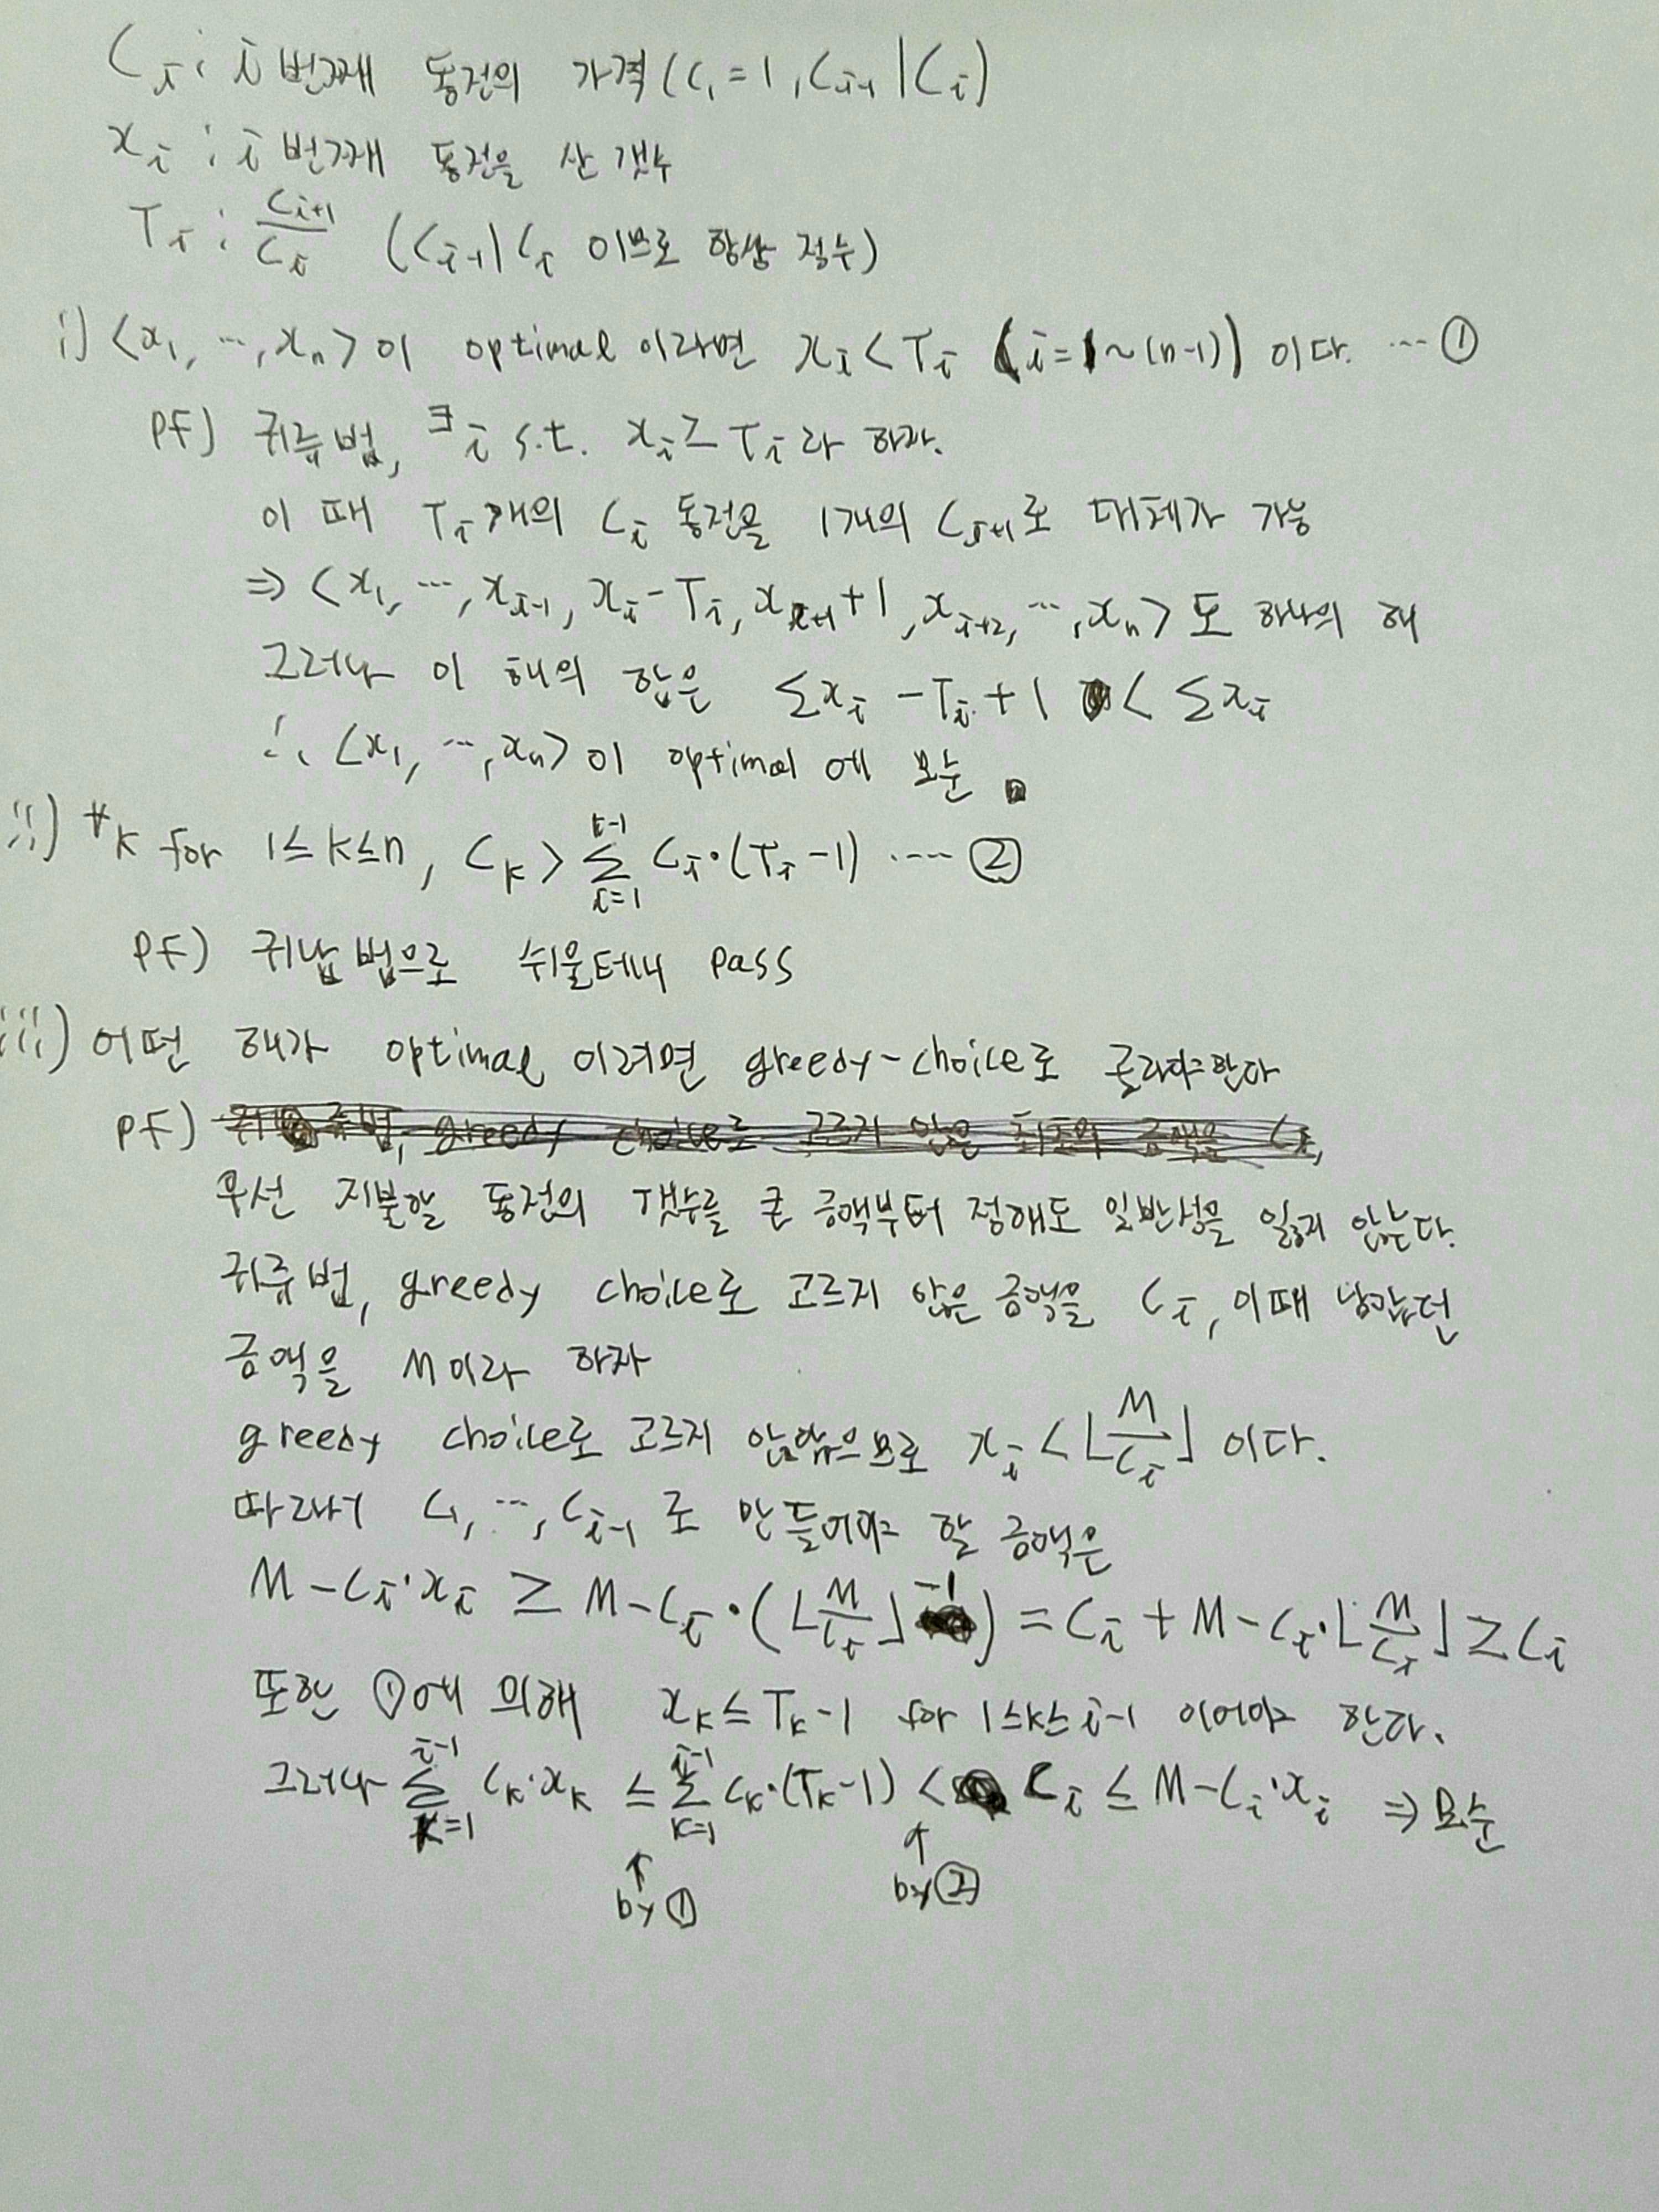 C_i : i 번째 동전의 가격 (C_1 = 1, C_{i-1} | C_i)
x_i : i 번째 동전을 산 갯수
T_i : C_{i+1}/C_i (C_{i-1} | C_i 이므로 항상 정수)
i) <x_1, ..., x_n> 이 optimal 이라면 x_i < T_i (i = 1 ~ (n-1)) 이다. ... ①
pf) 귀류법, ∃i s.t. x_i ≥ T_i 라 하자.
이 때 T_i 개의 C_i 동전을 1개의 C_{i+1}로 대체가 가능
⇒ <x_1, ..., x_{i-1}, x_i - T_i, x_{i+1} + 1, x_{i+2}, ..., x_n> 도 하나의 해
그러나 이 해의 합은 Σx_i - T_i + 1 < Σx_i
∴ <x_1, ..., x_n> 이 optimal 에 모순
ii) ∀k for 1 ≤ k ≤ n, C_k > Σ_{i=1}^{k-1} C_i · (T_i - 1) .... ②
pf) 귀납법으로 쉬울테니 pass
iii) 어떤 해가 optimal 이려면 greedy-choice로 골라야한다
pf) greedy choice로 고르지 않은 최초의 금액을 C_i,
우선 지불할 동전의 갯수를 큰 금액부터 정해도 일반성을 잃지 않는다.
귀류법, greedy choice로 고르지 않은 금액을 C_i, 이때 남았던
금액을 M이라 하자
greedy choice로 고르지 않았으므로 x_i < ⌊M/C_i⌋ 이다.
따라서 C_1, ..., C_{i-1} 로 만들어야 할 금액은
M - C_i·x_i ≥ M - C_i · (⌊M/C_i⌋ -1) = C_i + M - C_i·⌊M/C_i⌋ ≥ C_i
또한 ①에 의해 x_k ≤ T_k - 1 for 1 ≤ k ≤ i-1 이어야 한다.
그러나 Σ_{k=1}^{i-1} C_k·x_k ≤ Σ_{k=1}^{i-1} C_k·(T_k - 1) < C_i ≤ M - C_i·x_i ⇒ 모순
by ① by ②